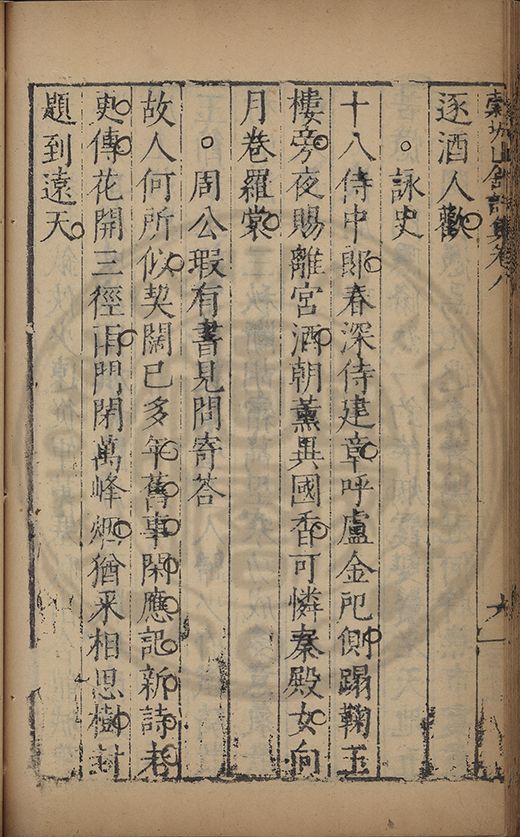 穀城山館詩集卷八
逐酒人歡
○詠史
十八侍中郎春深侍建章呼盧金戺側蹋鞠玉
樓旁夜賜離宮酒朝薰異國香可憐秦殿女向
月卷羅裳
○周公瑕有書見問寄荅
故人何所似契闊已多年舊事閑應記新詩老
更傳花開三徑雨門閉萬峰烟猶采相思樹封
題到遠天